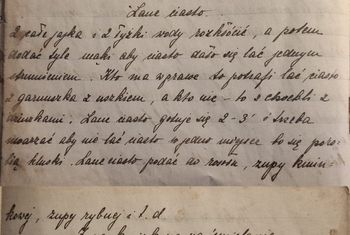 Lane ciasto.
2 całe jajka i 2 łyżki wody rozkłócić, a potem
dodać tyle mąki aby ciasto dało się lać jednym
strumieniem. Kto ma wprawę to potrafi lać ciasto
z garnuszka z uszkiem, a kto nie - to z chochli z
dziubkami. Lane ciasto gotuje się 2-3' i trzeba
uważać aby nie lać ciasto w jedno miejsce bo się poro-
bią kluski. Lane ciasto podać do rosołu, zupy kmin-
kowej, zupy rybnej i t. d.